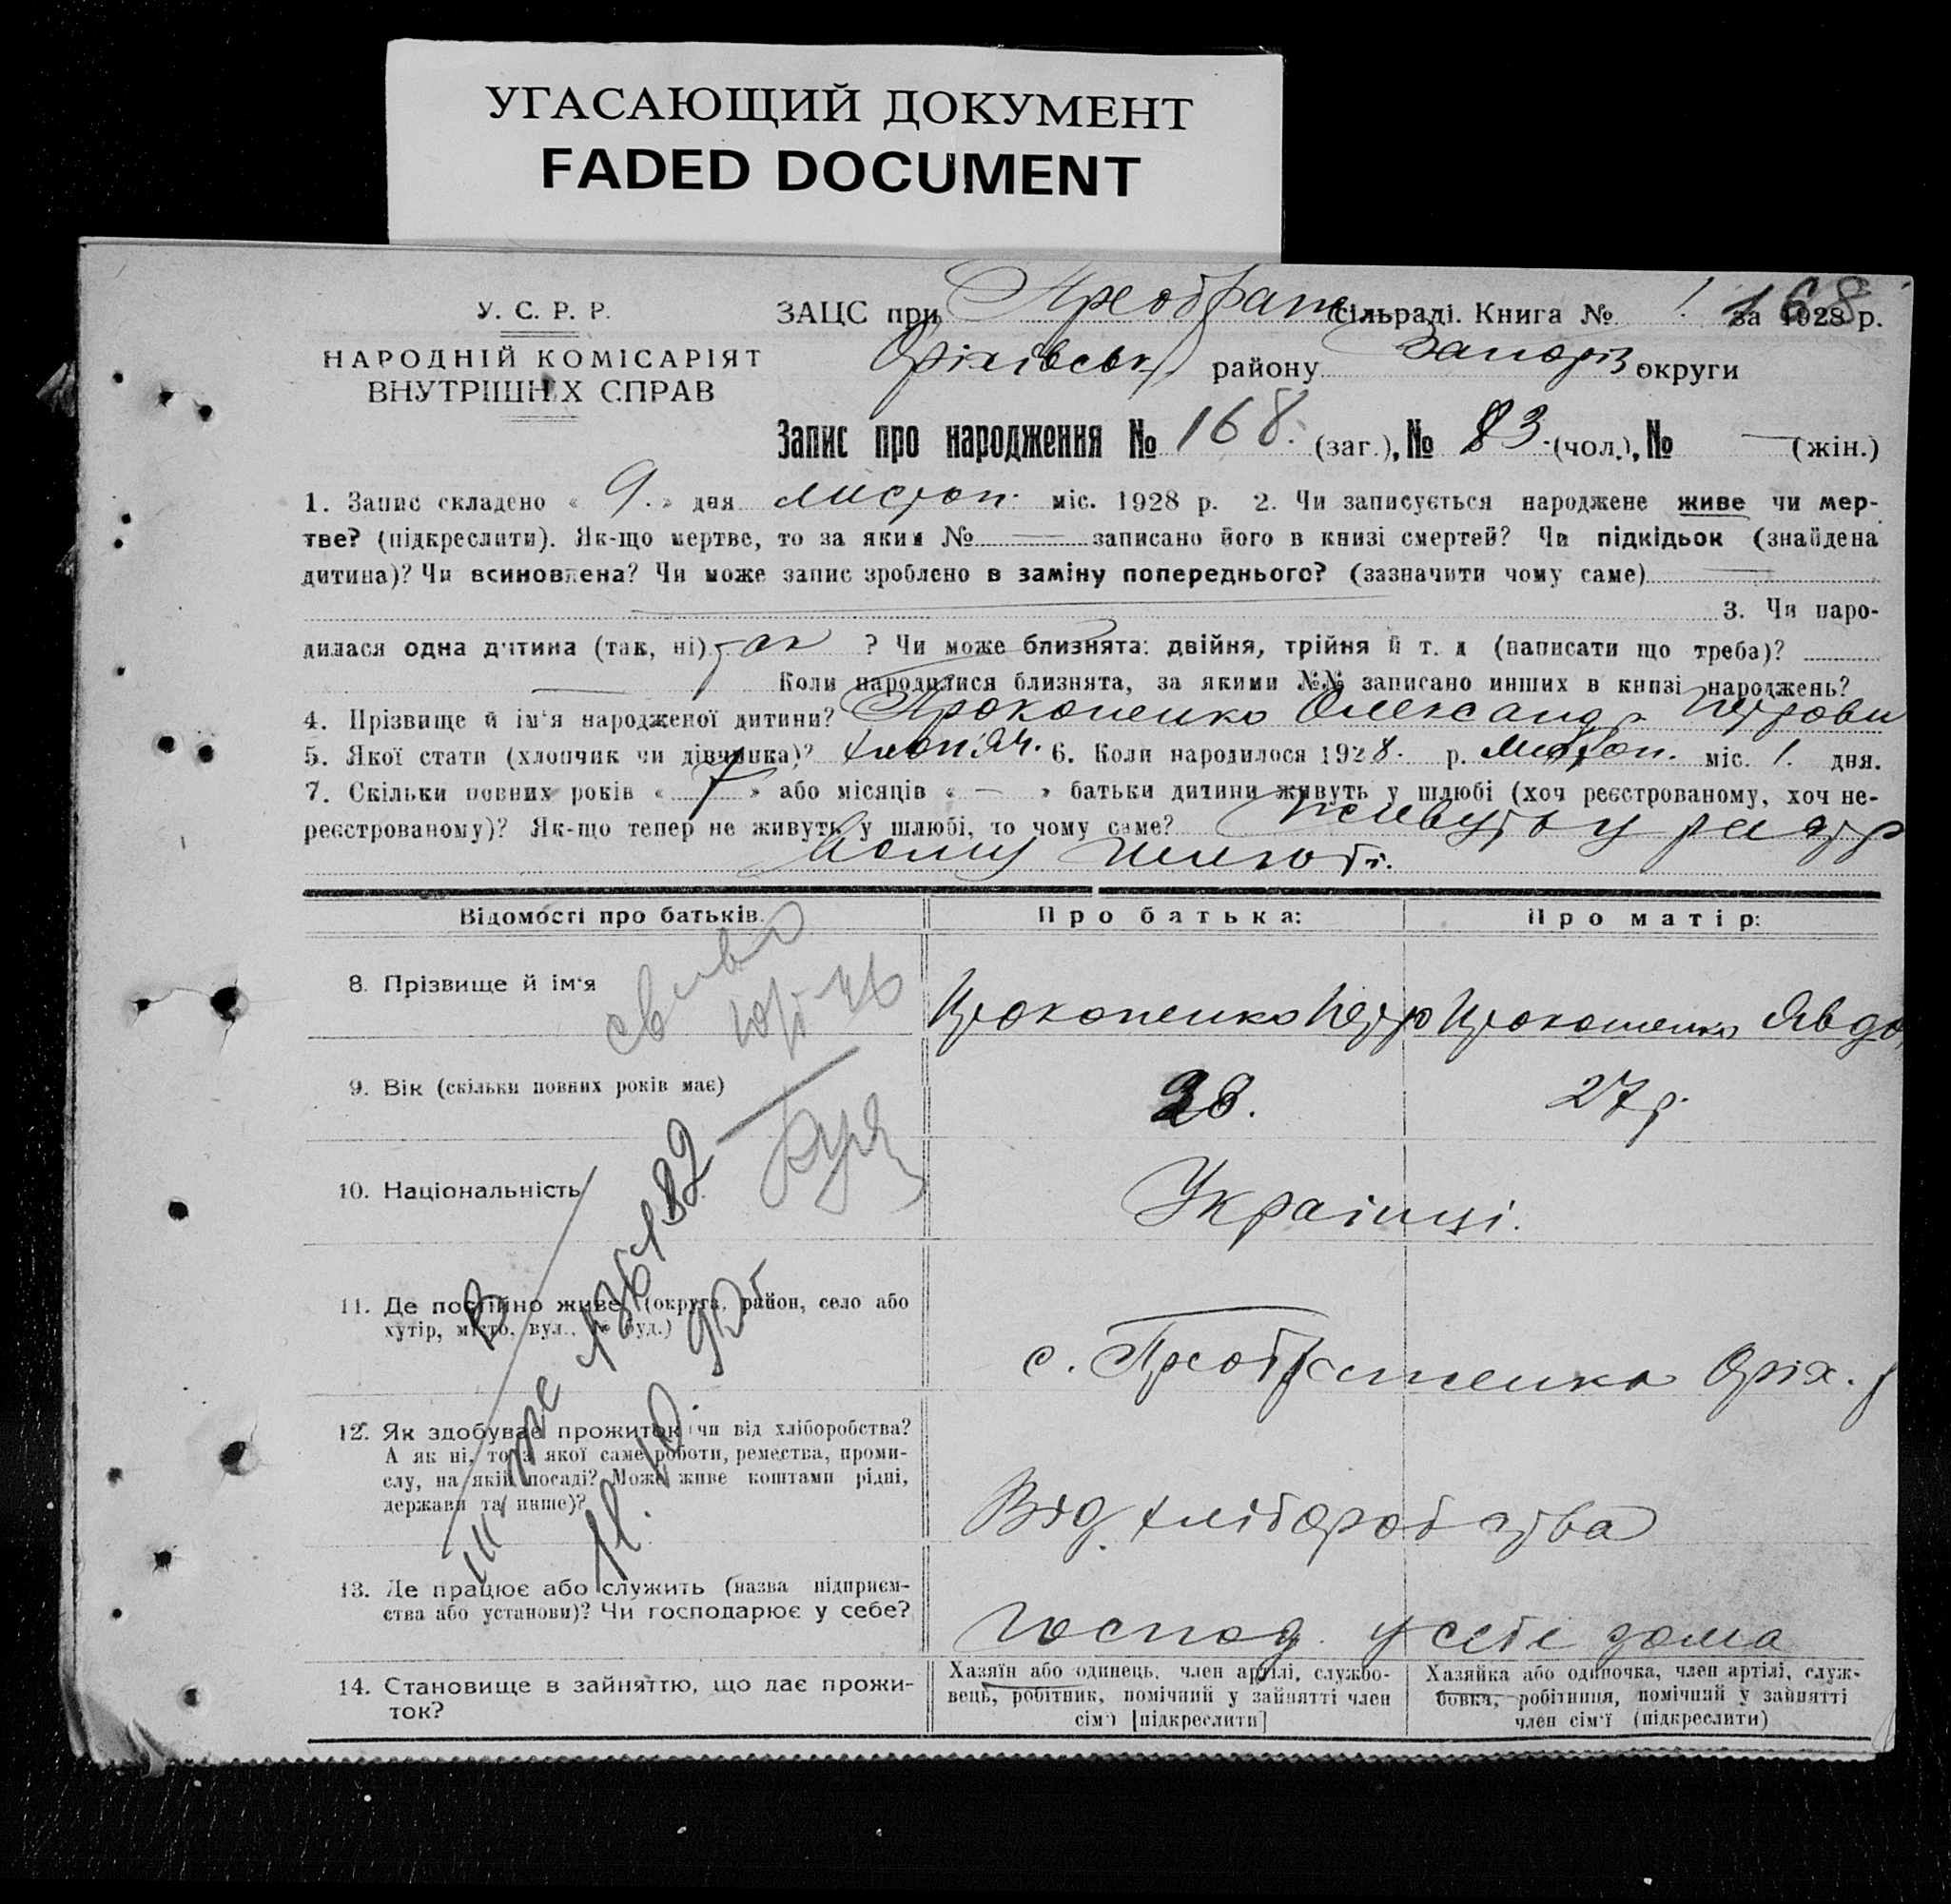 УГАСАЮЩИЙ ДОКУМЕНТ
FADED DOCUMENT
У. С. Р. Р.
НАРОДНІЙ КОМІСАРІЯТ
ВНУТРІШНІХ СПРАВ
ЗАЦС при Преображ сільраді. Книга № 1. за 1928 р.
168
Оріхівськ району Запоріз округи
Запис про народження № 168. (заг.), № 83. (чол.), № — (жін.)
1. Запис складено « 9. » дня листоп. міс. 1928 р. 2. Чи записується народжене живе чи мер-
тве? (підкреслити). Як-що мертве, то за яким № — записано його в книзі смертей? Чи підкідьок (знайдена
дитина)? Чи всиновлена? Чи може запис зроблено в заміну попереднього? (зазначити чому саме) —
3. Чи наро-
дилася одна дитина (так, ні) так ? Чи може близнята: двійня, трійня й т. д (написати що треба)?
— Коли народилися близнята, за якими №№ записано инших в книзі народжень?
4. Прізвище й ім'я народженої дитини? Прокопенко Олександр Петрови
5. Якої стати (хлопчик чи дівчинка)? хлоп'яч. 6. Коли народилося 1928. р. Листоп. міс. 1. дня.
7. Скільки повних років « 7 » або місяців « — » батьки дитини живуть у шлюбі (хоч реєстрованому, хоч не-
реєстрованому)? Як-що тепер не живуть у шлюбі, то чому саме? живуть у реєстр
шлюбі.
Відомості про батьків. Про батька: Про матір:
8. Прізвище й ім'я Прокопенко Петро Прокопенко Явдо
9. Вік (скільки повних років має) 28. 27 р.
10. Національність Українці.
11. Де постійно живе (округа, район, село або
хутір, місто, вул., № буд.)
с. Преображенка Оріх. р
12. Як здобуває прожиток чи від хліборобства?
А як ні, то з якої саме роботи, ремества, проми-
слу, на якій посаді? Може живе коштами рідні,
держави та инше)?
Від хліборобства
13. Де працює або служить (назва підприєм-
ства або установи)? Чи господарює у себе?
Господ. у себе дома
14. Становище в зайняттю, що дає прожи-
ток?
Хазяїн або одинець, член артілі, службо-
вець, робітник, помічний у зайнятті член
сім'ї [підкреслити]
Хазяйка або одиночка, член артілі, служ-
бовка, робітниця, помічний у зайнятті
член сім'ї (підкреслити)